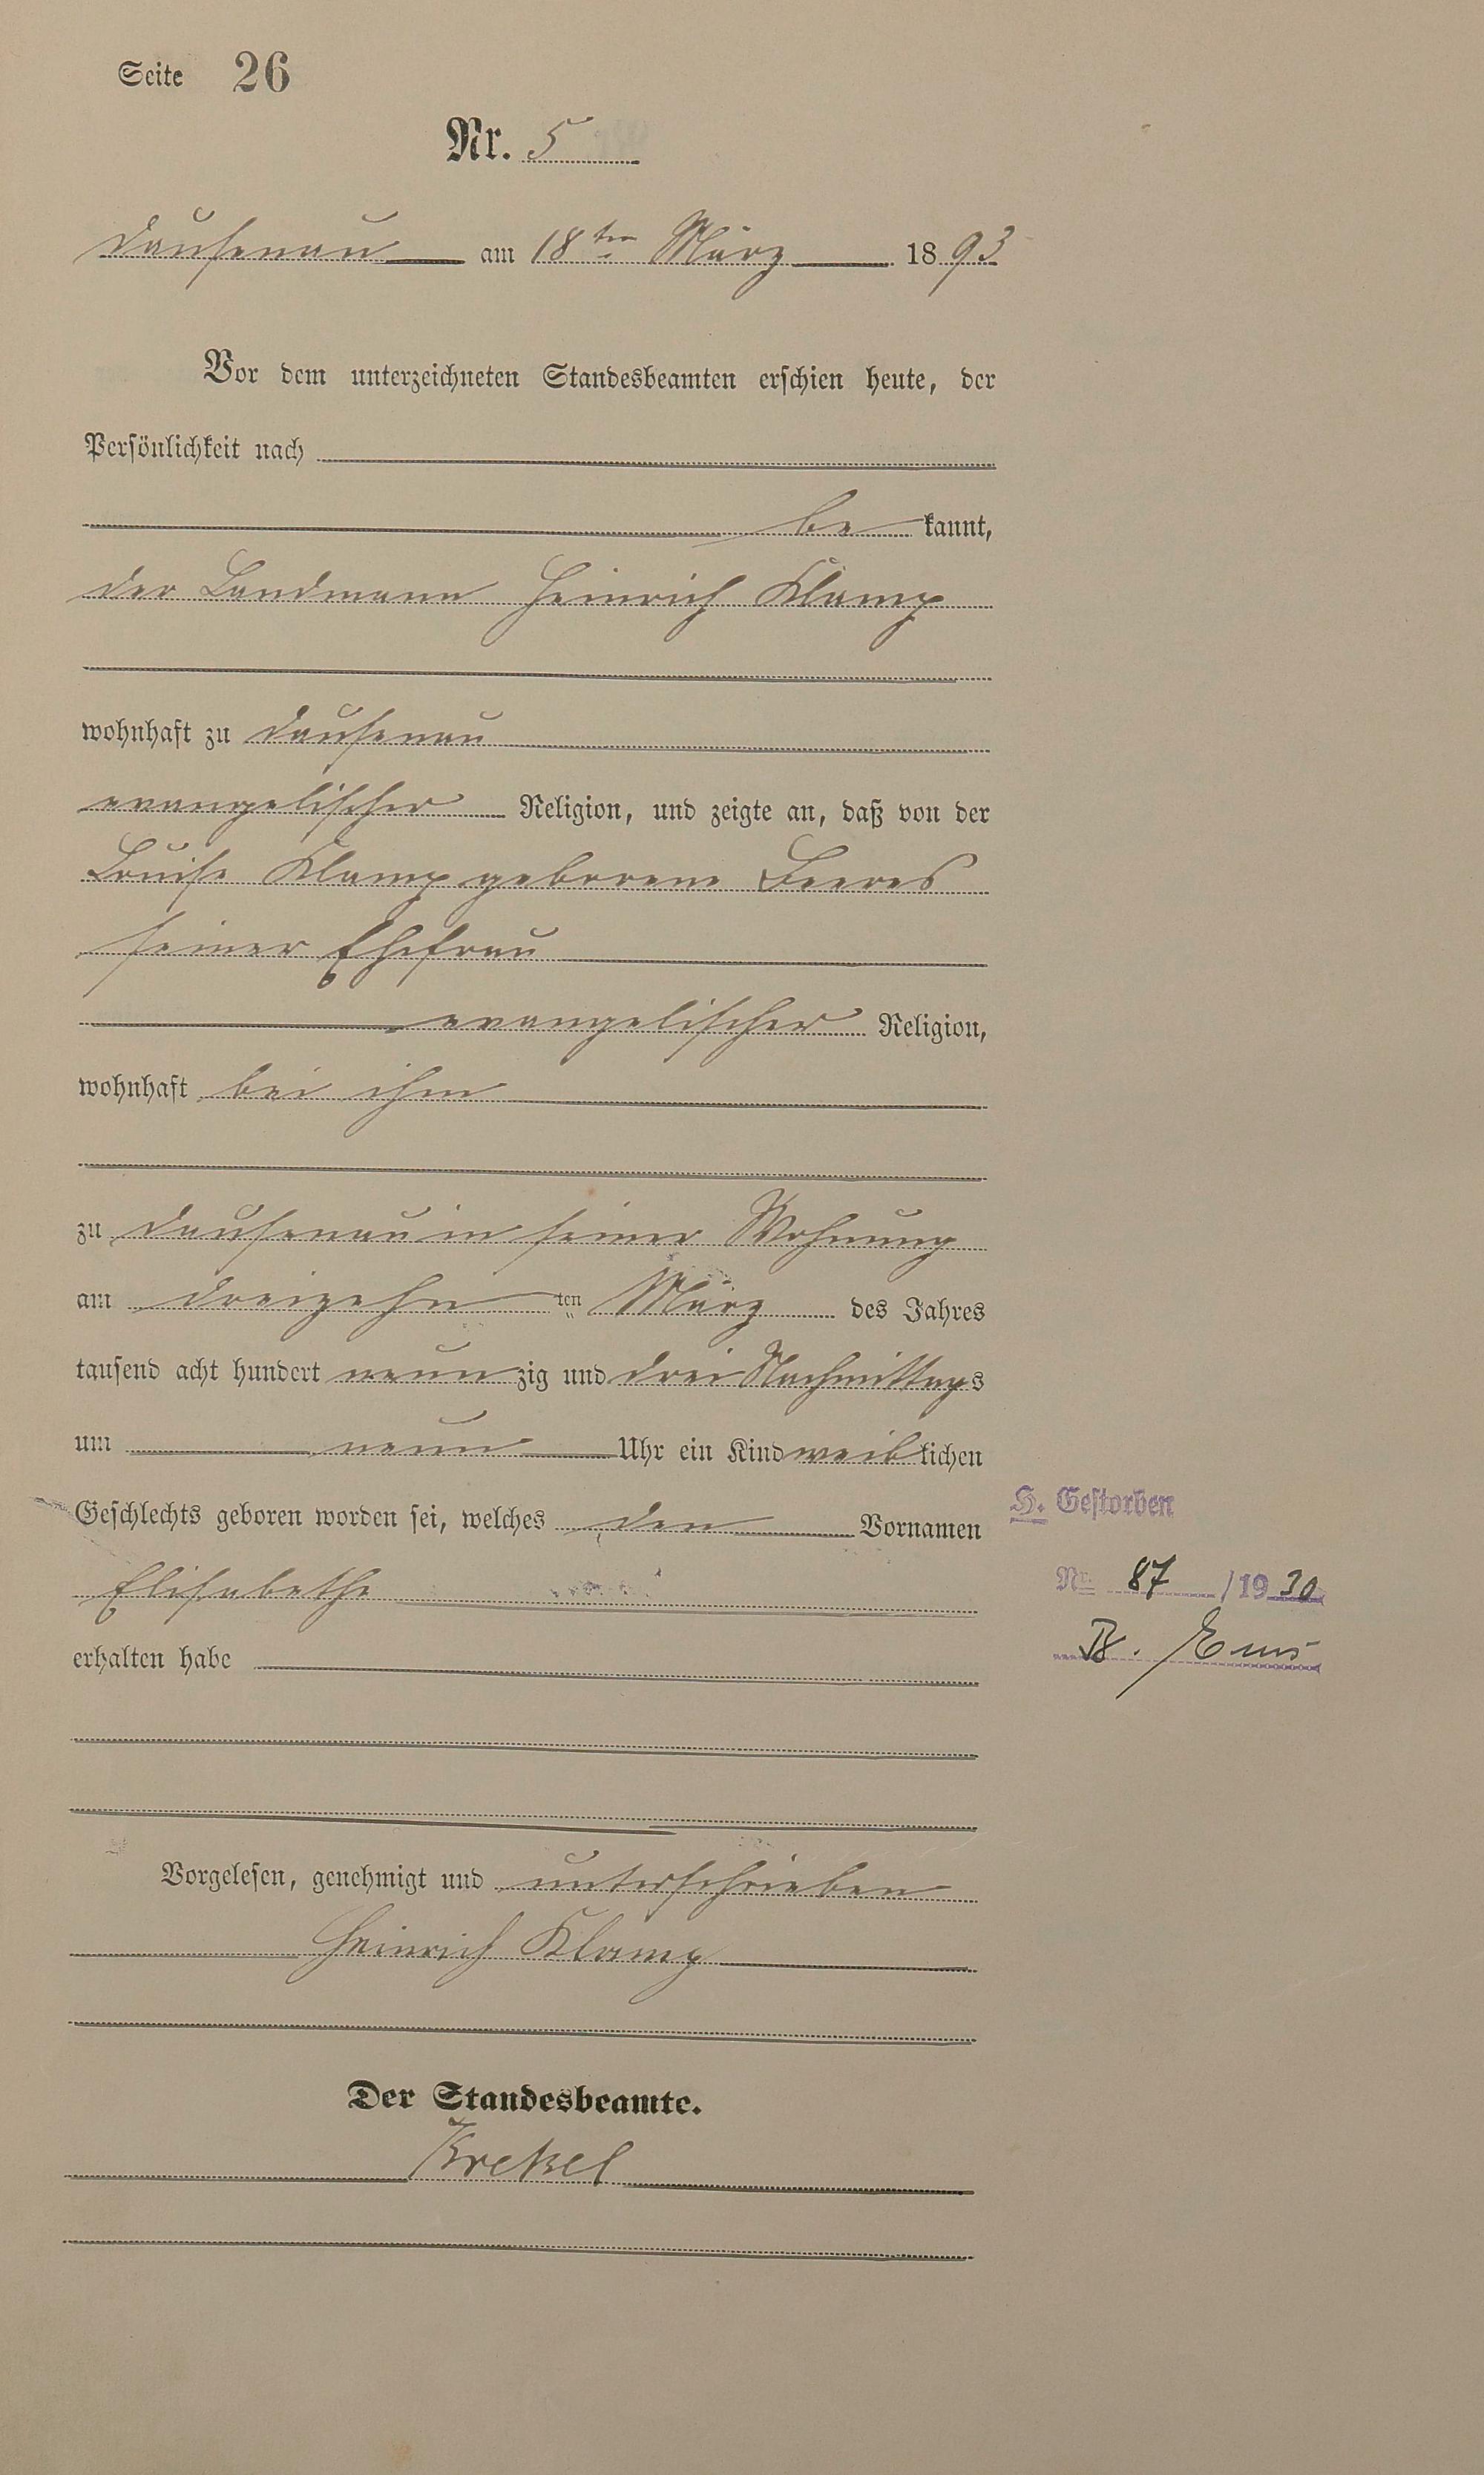 Seite 26
Nr. 5
Dausenau am 18ten März 1893
Vor dem unterzeichneten Standesbeamten erschien heute, der
Persönlichkeit nach
bekannt,
der Landmann Heinrich Klamp
wohnhaft zu Dausenau
evangelischer Religion, und zeigte an, daß von der
Louise Klamp geborene
seiner Ehefrau
evangelischer Religion,
wohnhaft bei ihm
zu Dausenau in seiner Wohnung
am dreizehnten März des Jahres
tausend acht hundert neunzig und drei Nachmittags
um neun Uhr ein Kind weiblichen
Geschlechts geboren worden sei, welches den Vornamen
Elisabethe
erhalten habe
Vorgelesen, genehmigt und unterschrieben
Heinrich Klamp
Der Standesbeamte.
Krekel
H. Gestorben
Nr. 87 /1930
B. Ems